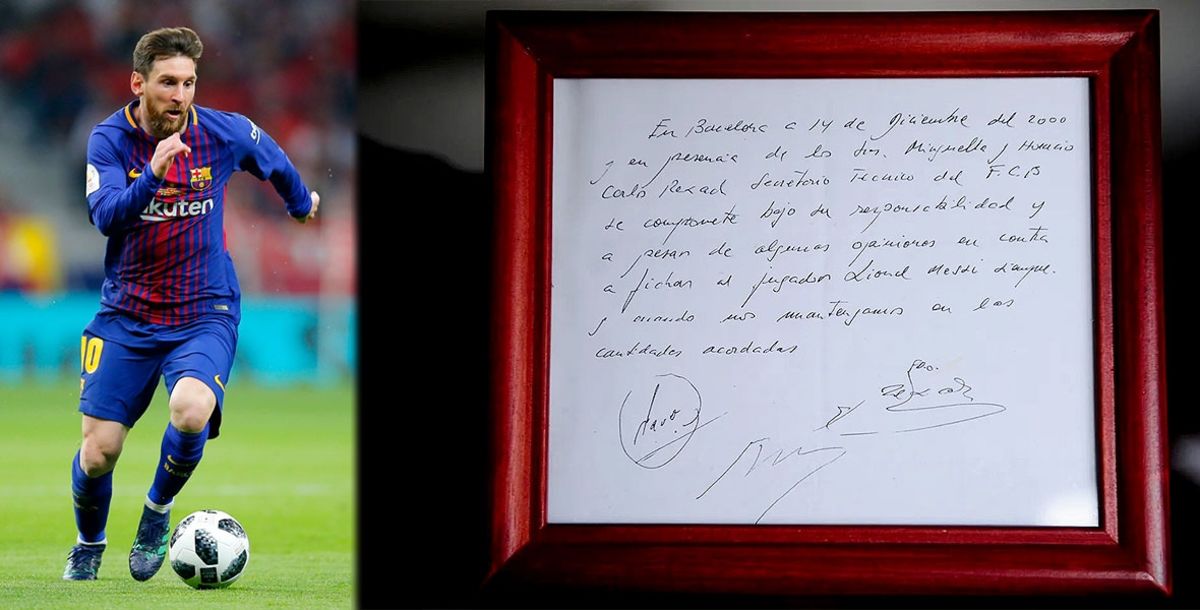 Rakuten
10
En Barcelona a 14 de Diciembre del 2000
y en presencia de los Srs. Minguella y Horacio
Carlos Rexach Secretario Tecnico del F.C.B
se compromete bajo su responsabilidad y
a pesar de algunas opiniones en contra
a fichar al jugador Lionel Messi siempre.
y cuando nos mantengamos en las
cantidades acordadas